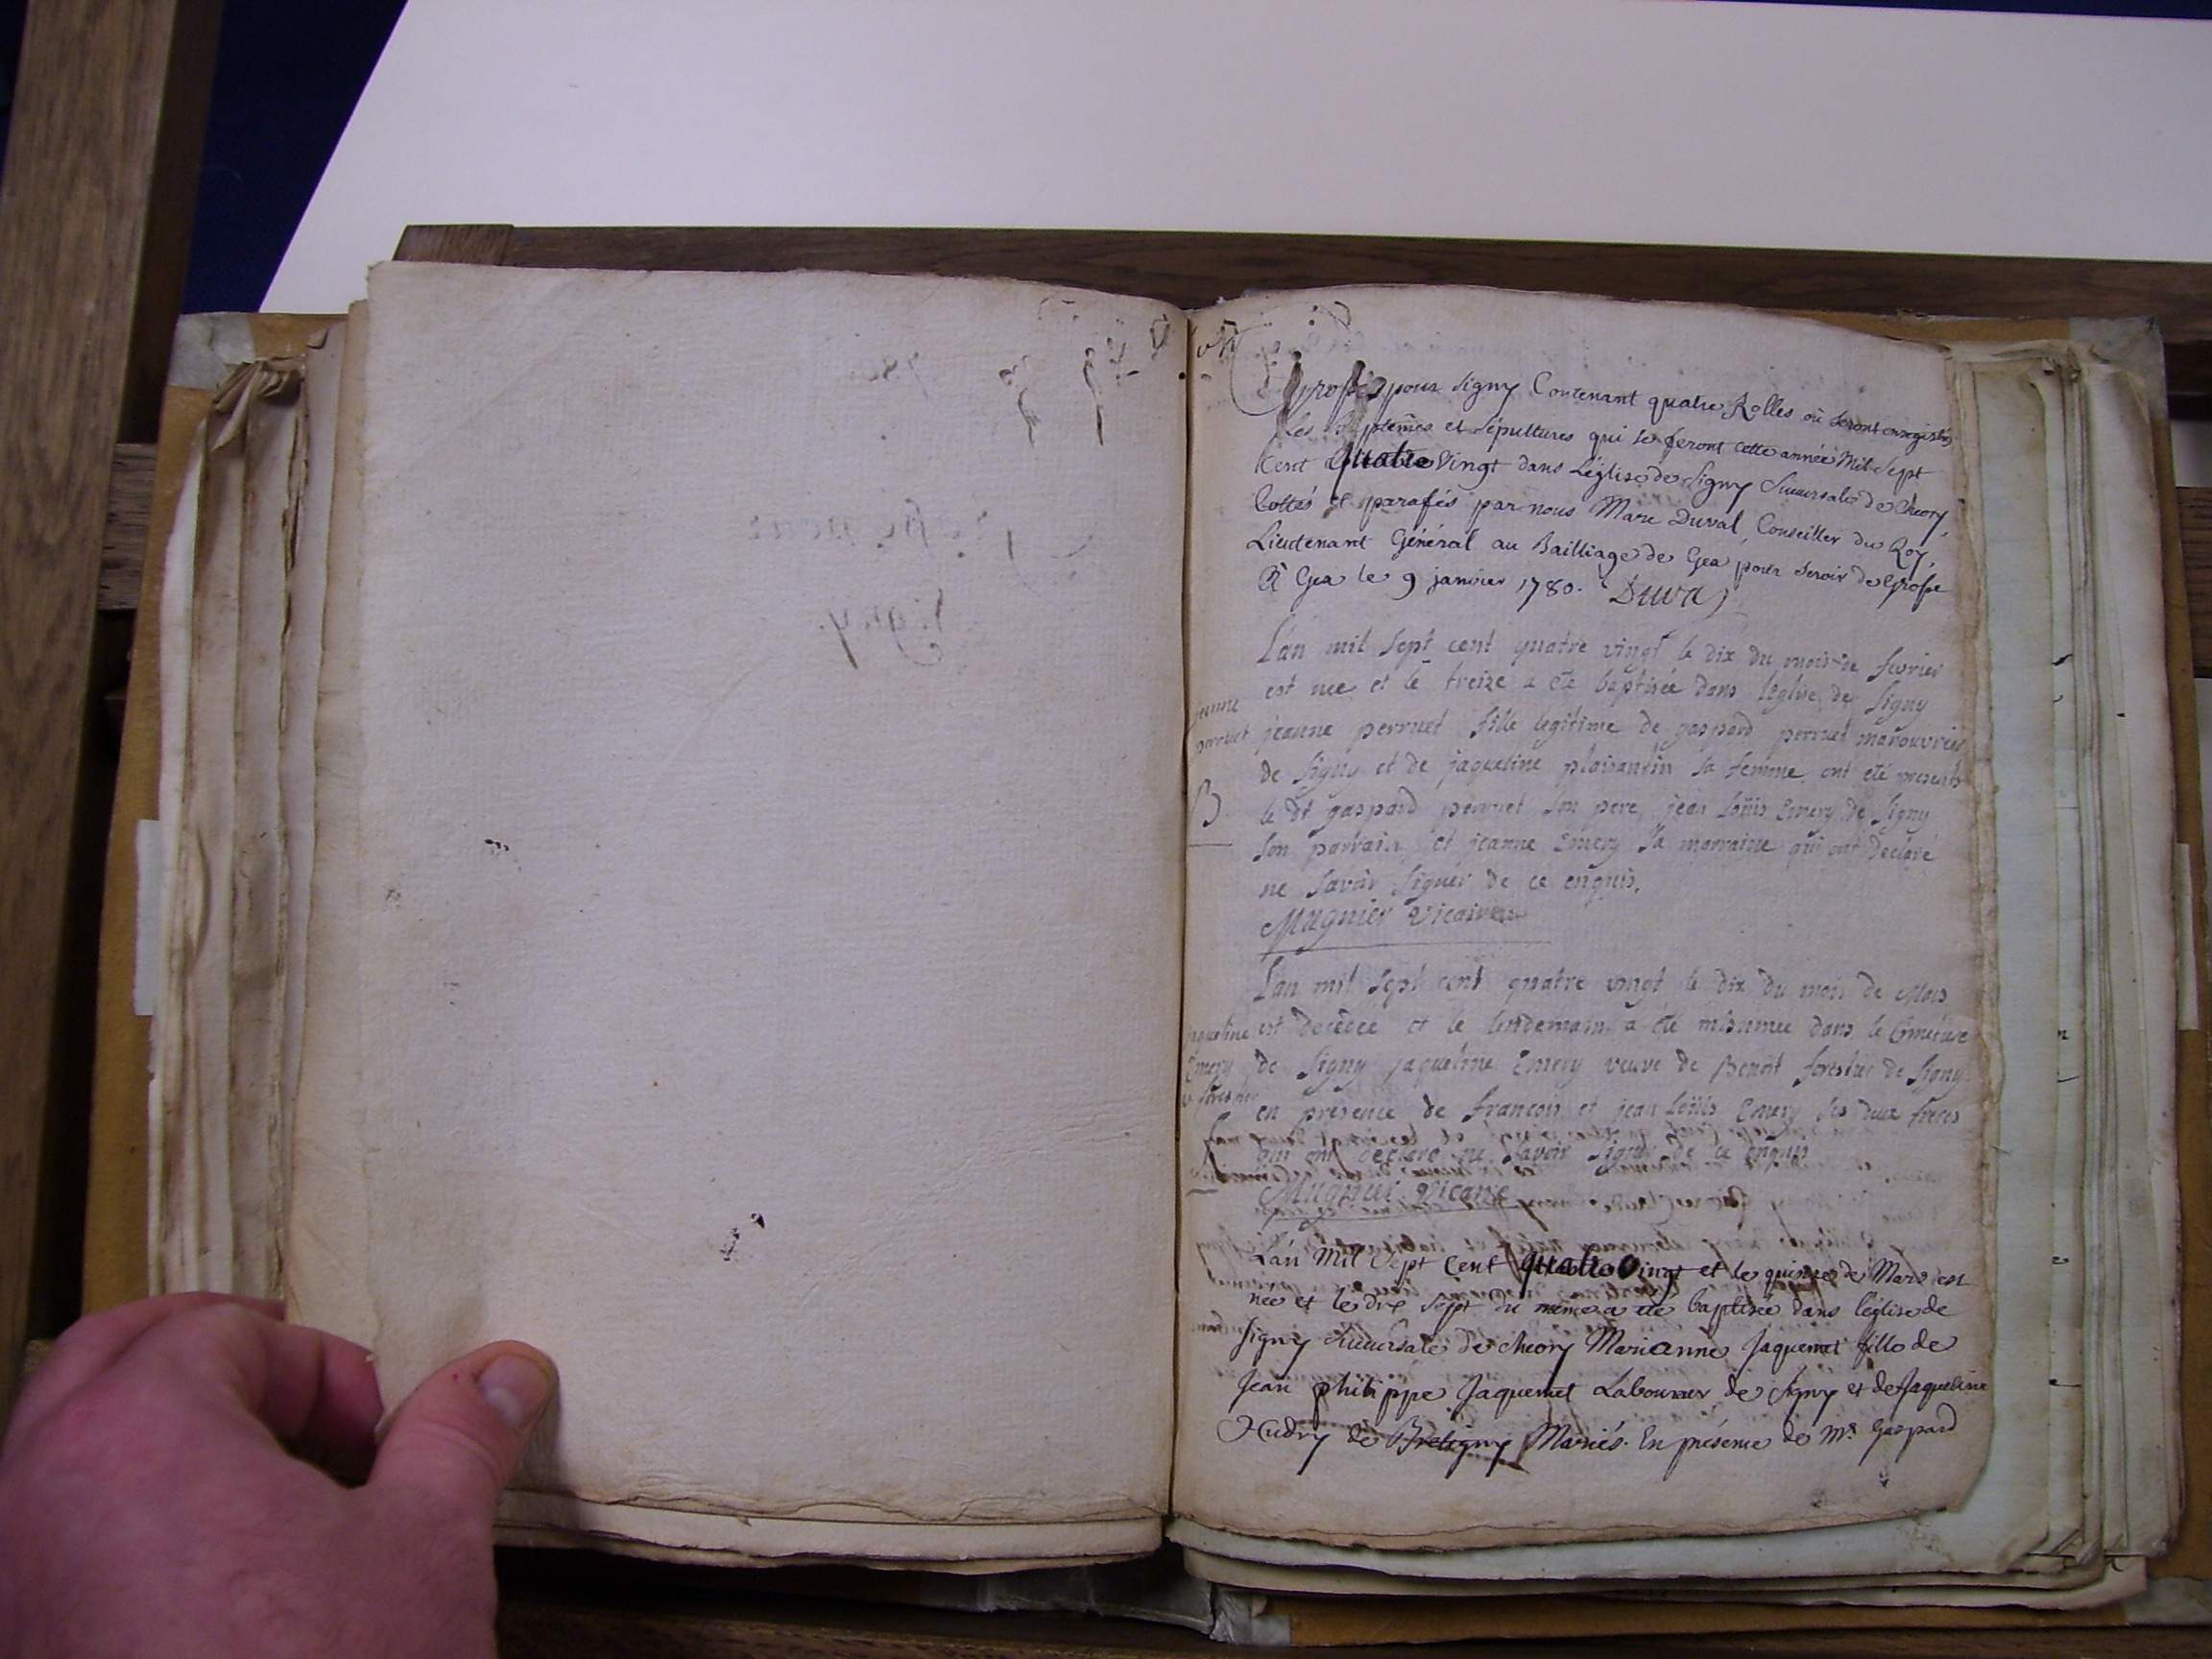 Grosse pour Signy Contenant quatre Rolles où seront enregistrés
Les Baptêmes et Sépultures qui se feront cette année Mil Sept
Cent Quatre Vingt dans L'église de Signy Succursale de Cheory,
Cottés et parafés par nous Marc Duval, Conseiller du Roy,
Lieutenant Général au Bailliage de Gex pour servir de Grosse
A Gex le 9 janvier 1780. Duval
L'an mil sept cent quatre vingt le dix du mois de fevrier
est nee et le treize a été baptisée dans l'eglise de Signy
jeanne perruet fille legitime de gaspard perruet manouvrier
de Signy et de jaqueline plaisantin sa femme ont été presents
le dt gaspard perruet son pere, jean Loüis Emery de Signy
son parrain, et jeanne Emery sa marraine qui ont déclaré
ne savoir signer de ce enquis.
Mugnier vicaire
jeanne
perruet
B
L'an mil sept cent quatre vingt le dix du mois de Mars
est decedee et le lendemain a été inhumee dans le Cimetiere
de Signy jaqueline Emery veuve de Benoit forestier de Signy
en présence de francois et jean Loüis Emery ses deux freres
qui ont declaré ne savoir signer de ce enquis
Mugnier vicaire
jaqueline
Emery
L'an Mil Sept Cent Quatre Vingt et le quinze de Mars est
née et le dix sept du même a été baptisée dans l'église de
Signy Succursale de Cheory Marianne Jaquemet fille de
Jean philippe Jaquemet Laboureur de Signy et de Jaqueline
Hudry de Bretigny Mariés. En présence de Mr. Gaspard